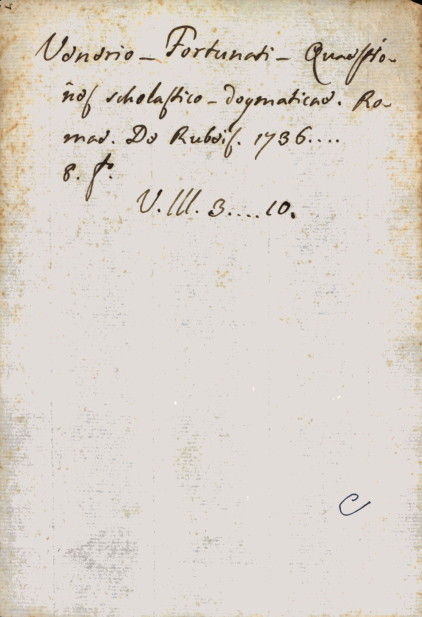 Venerio - Fortunati - Quaestio-
ñes scholastico-dogmaticae. Ro-
mae. De Rubeis. 1736....
8. fo.
V. III. 3....10.
C